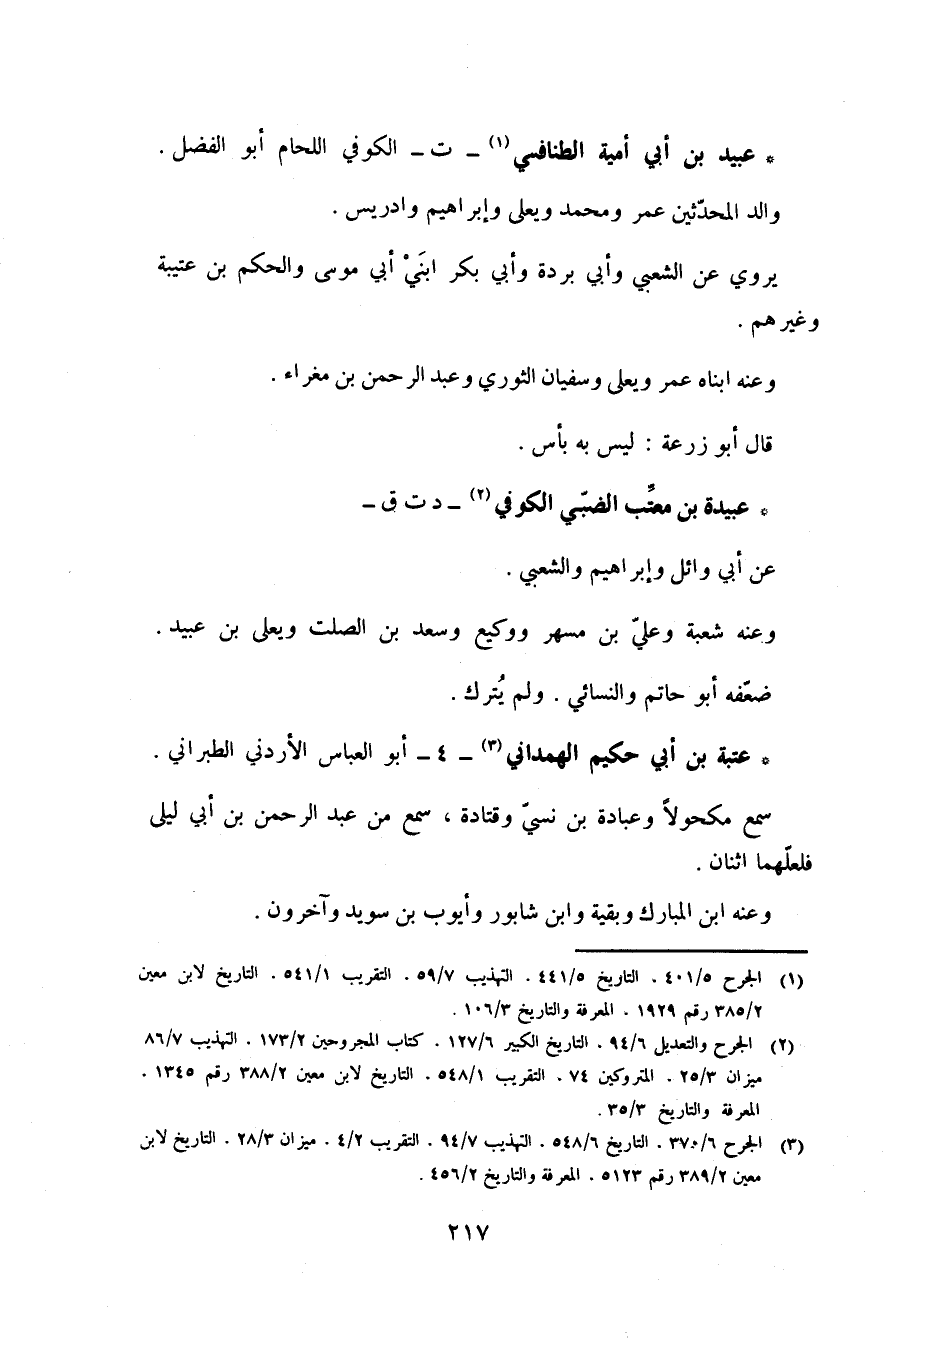 * عبيد بن أبي أمية الطنافسي(١) ـ ت ـ الكوفي اللحام أبو الفضل .
والد المحدّثين عمر ومحمد ويعلى وإبراهيم وادريس .
يروي عن الشعبي وأبي بردة وأبي بكر ابنَيْ أبي موسى والحكم بن عتيبة
وغيرهم .
وعنه ابناه عمر ويعلى وسفيان الثوري وعبد الرحمن بن مغراء .
قال أبو زرعة : ليس به بأس .
* عبيدة بن معتِّب الضبّي الكوفي(٢) ـ د ت ق ـ
عن أبي وائل وإبراهيم والشعبي .
وعنه شعبة وعليّ بن مسهر ووكيع وسعد بن الصلت ويعلى بن عبيد .
ضعّفه أبو حاتم والنسائي . ولم يُترك .
* عتبة بن أبي حكيم الهمداني(٣) ـ ٤ ـ أبو العباس الأردني الطبراني .
سمع مكحولاً وعبادة بن نسيّ وقتادة ، سمع من عبد الرحمن بن أبي ليلى
فلعلّهما اثنان .
وعنه ابن المبارك وبقية وابن شابور وأيوب بن سويد وآخرون .
(١) الجرح ٤٠١/٥ . التاريخ ٤٤١/٥ . التهذيب ٥٩/٧ . التقريب ٥٤١/١ . التاريخ لابن معين
٣٨٥/٢ رقم ١٩٢٩ . المعرفة والتاريخ ١٠٦/٣ .
(٢) الجرح والتعديل ٩٤/٦ . التاريخ الكبير ١٢٧/٦ . كتاب المجروحين ١٧٣/٢ . التهذيب ٨٦/٧
ميزان ٢٥/٣ . المتروكين ٧٤ . التقريب ٥٤٨/١ . التاريخ لابن معين ٣٨٨/٢ رقم ١٣٤٥ .
المعرفة والتاريخ ٣٥/٣ .
(٣) الجرح ٣٧٠/٦ . التاريخ ٥٤٨/٦ . التهذيب ٩٤/٧ . التقريب ٤/٢ . ميزان ٢٨/٣ . التاريخ لابن
معين ٣٨٩/٢ رقم ٥١٢٣ . المعرفة والتاريخ ٤٥٦/٢ .
٢١٧